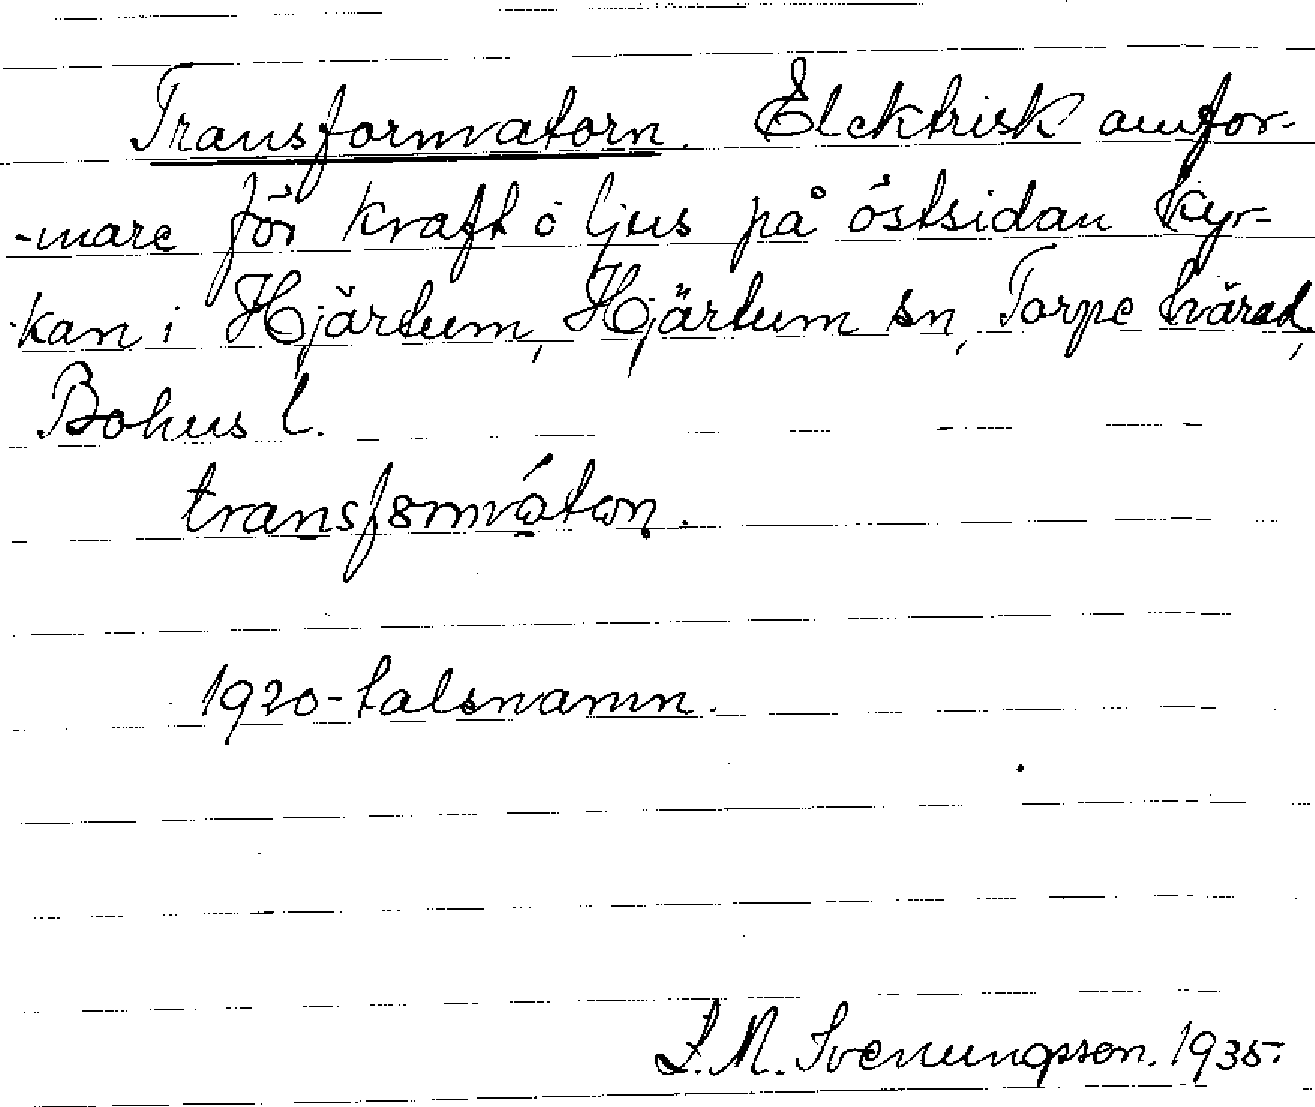 Transformatorn. Elektrisk omfor-
-mare för kraft o ljus på östsidan kyr-
kan i Hjärtum, Hjärtum sn, Torpe härad,
Bohus l.
transformátorn.
1920-talsnamn.
1935.